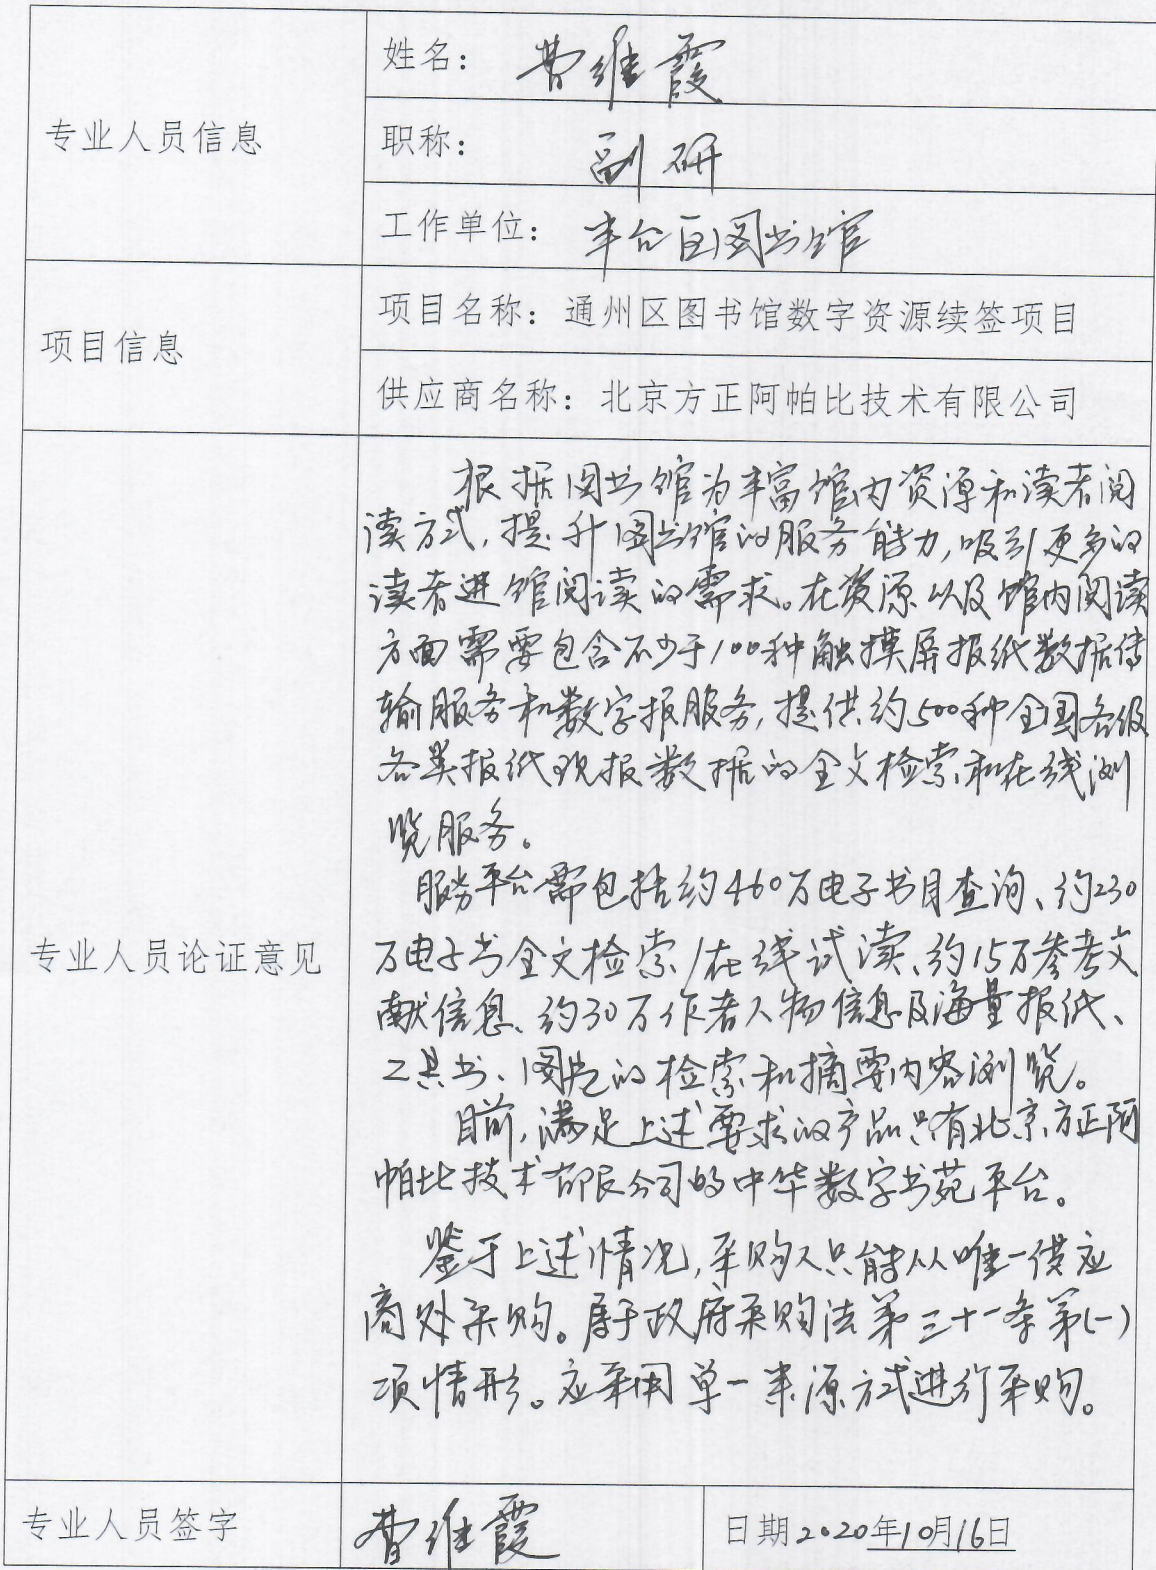 专业人员信息
姓名：曹维霞
职称：副研
工作单位：丰台区图书馆
项目信息
项目名称：通州区图书馆数字资源续签项目
供应商名称：北京方正阿帕比技术有限公司
专业人员论证意见
根据图书馆为丰富馆内资源和读者阅
读方式，提升图书馆的服务能力，吸引更多的
读者进馆阅读的需求。在资源以及馆内阅读
方面需要包含不少于100种触摸屏报纸数据传
输服务和数字报服务，提供约500种全国各级
各类报纸现报数据的全文检索和在线浏
览服务。
服务平台需包括约460万电子书目查询、约230
万电子书全文检索/在线试读、约15万参考文
献信息、约30万作者人物信息及海量报纸、
工具书、图片的检索和摘要内容浏览。
目前，满足上述要求的产品只有北京方正阿
帕比技术有限公司的中华数字书苑平台。
鉴于上述情况，采购人只能从唯一供应
商处采购。属于政府采购法第三十一条第(一)
项情形。应采用单一来源方式进行采购。
专业人员签字
曹维霞
日期2020年10月16日